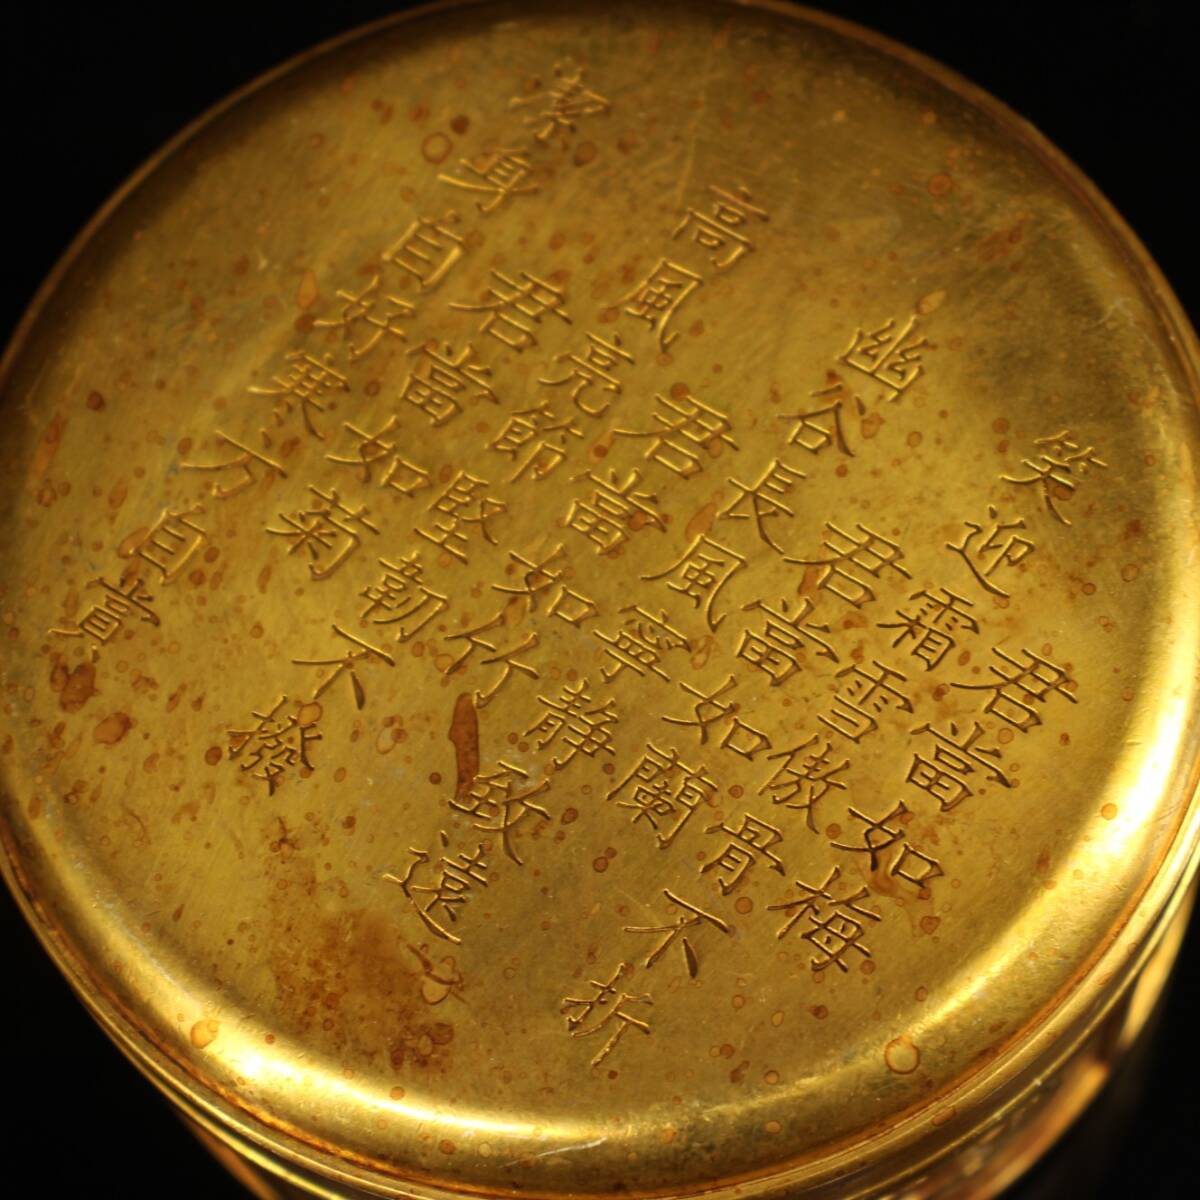 君當如梅
笑迎霜雪傲骨不折
君當如蘭
幽谷長風寧静致遠
君當如竹
高風亮節堅韌不撥
君當如菊
潔身自好寒方自賞